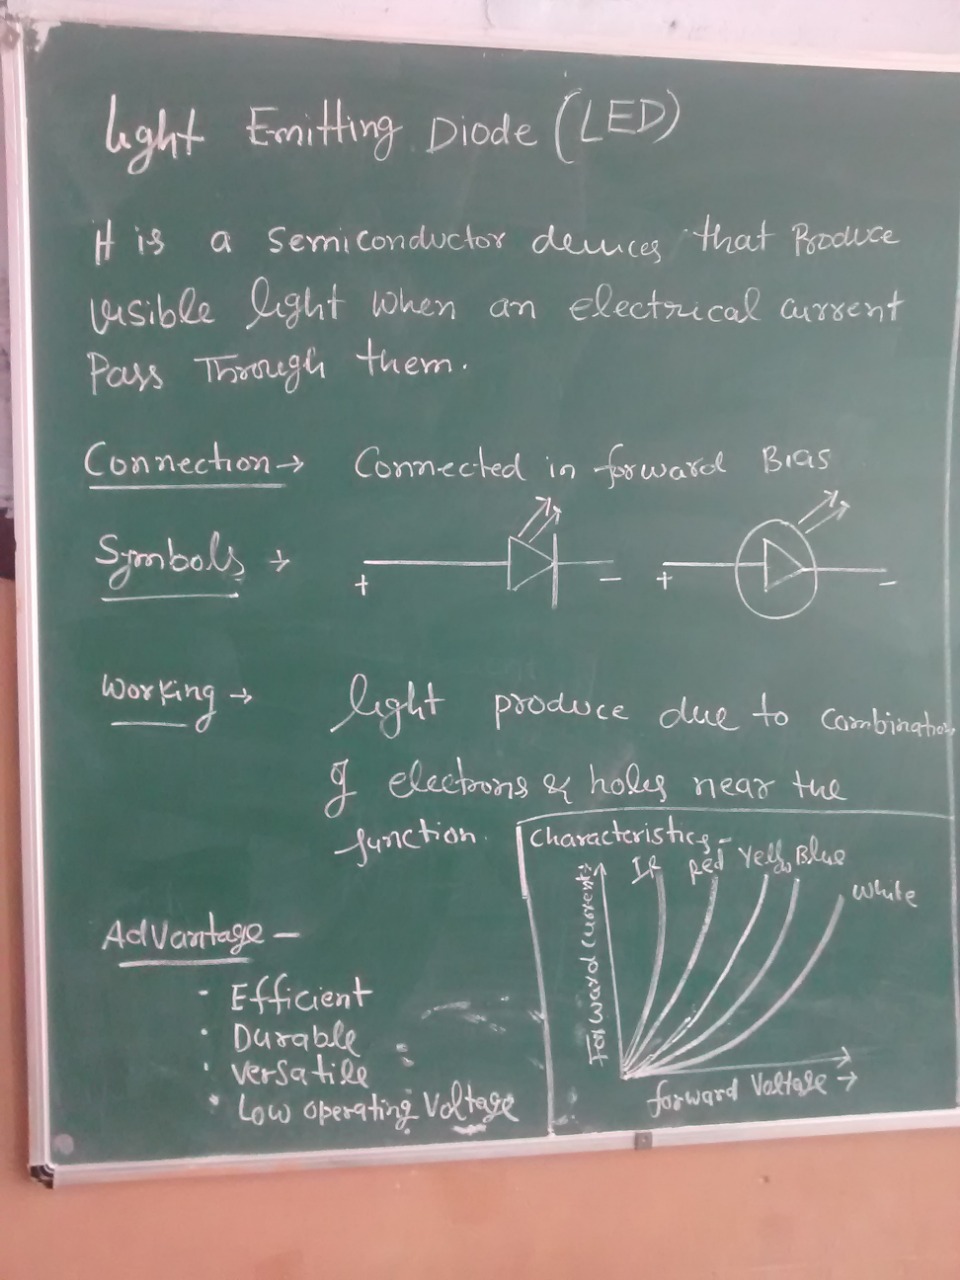 Light Emitting Diode (LED)
It is a semiconductor devices that Produce
visible light when an electrical current
Pass Through them.
Connection → Connected in forward Bias
Symbols →
+ - + -
Working → light produce due to combination
of electrons & holes near the
junction.
Characteristics -
IR Red Yellow Blue
White
Forward Current →
forward Voltage →
Advantage -
· Efficient
· Durable
· Versatile
· Low operating Voltage